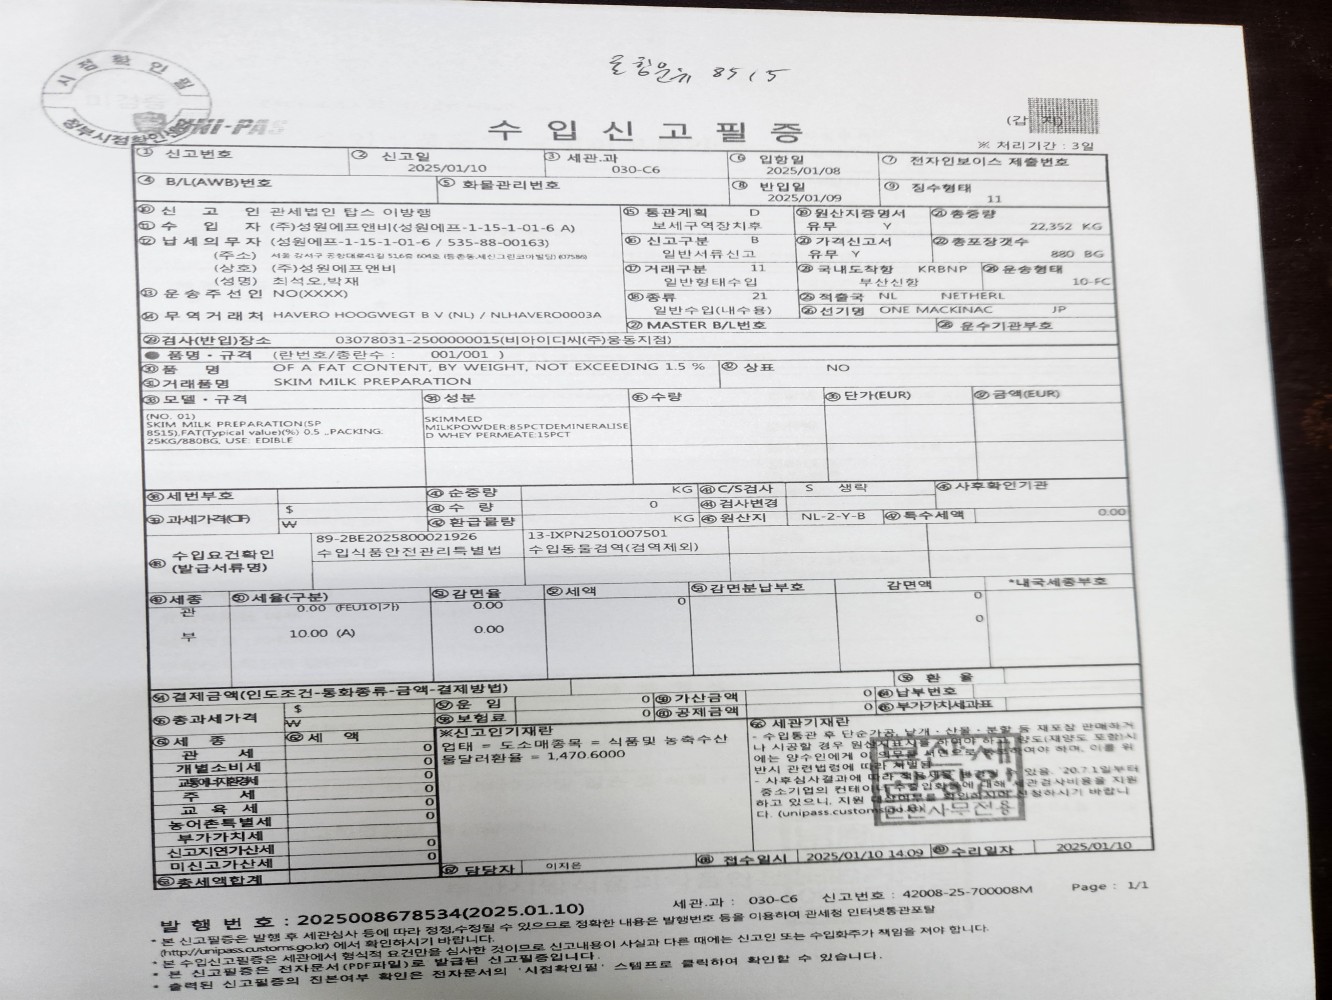 혼합분유 8515
시점확인필
UNI-PAS
수입신고필증
(갑 지)
※ 처리기간 : 3일
① 신고번호
② 신고일 2025/01/10
③ 세관.과 030-C6
⑥ 입항일 2025/01/08
⑦ 전자인보이스 제출번호
④ B/L(AWB)번호
⑤ 화물관리번호
⑧ 반입일 2025/01/09
⑨ 징수형태 11
⑩ 신 고 인 관세법인 탑스 이방행
⑪ 수 입 자 (주)성원에프앤비(성원에프-1-15-1-01-6 A)
⑫ 납세의무자 (성원에프-1-15-1-01-6 / 535-88-00163)
(주소)
(상호) (주)성원에프앤비
(성명) 최석오,박재
⑬ 운송주선인 NO(XXXX)
⑭ 무역거래처 HAVERO HOOGWEGT B V (NL) / NLHAVERO0003A
⑮ 통관계획 D
보세구역장치후
⑯ 신고구분 B
일반서류신고
⑰ 거래구분 11
일반형태수입
⑱ 종류 21
일반수입(내수용)
⑲ 원산지증명서
유무 Y
⑳ 가격신고서
유무 Y
㉑ 총중량
22,352 KG
㉒ 총포장갯수
880 BG
㉓ 국내도착항 KRBNP
부산신항
㉔ 운송형태
10-FC
㉕ 적출국 NL NETHERL
㉖ 선기명 ONE MACKINAC JP
㉗ MASTER B/L번호
㉘ 운수기관부호
㉙ 검사(반입)장소 03078031-2500000015(비아이디씨(주)웅동지점)
● 품명·규격 (란번호/총란수 : 001/001 )
㉚ 품 명 OF A FAT CONTENT, BY WEIGHT, NOT EXCEEDING 1.5 %
㉛ 거래품명 SKIM MILK PREPARATION
㉜ 상표 NO
㉝ 모델·규격
㉞ 성분
㉟ 수량
㊱ 단가(EUR)
㊲ 금액(EUR)
(NO. 01)
SKIM MILK PREPARATION(SP
8515),FAT(Typical value)(%) 0.5 _PACKING:
25KG/880BG, USE: EDIBLE
SKIMMED
MILKPOWDER:85PCTDEMINERALISE
D WHEY PERMEATE:15PCT
㊳ 세번부호
㊵ 순중량 KG
㊸ C/S검사 S 생략
사후확인기관
㊴ 과세가격(CIF)
$
₩
㊶ 수 량 0
㊹ 검사변경
㊷ 환급물량 KG
㊺ 원산지 NL-2-Y-B
특수세액 0.00
수입요건확인
(발급서류명)
89-2BE2025800021926
수입식품안전관리특별법
13-IXPN2501007501
수입동물검역(검역제외)
㊾ 세종
㊿ 세율(구분)
감면율
세액
감면분납부호
감면액
*내국세종부호
관 0.00 (FEU1이가) 0.00 0 0
부 10.00 (A) 0.00 0
결제금액(인도조건-통화종류-금액-결제방법)
환 율
총과세가격
$
₩
운 임 0
가산금액 0
납부번호
보험료 0
공제금액 0
부가가치세과표
세 종
세 액
관 세 0
개별소비세 0
교통에너지환경세 0
주 세 0
교 육 세 0
농어촌특별세 0
부가가치세
신고지연가산세 0
미신고가산세 0
총세액합계
※신고인기재란
업태 = 도소매종목 = 식품및 농축수산
물달러환율 = 1,470.6000
세관기재란
- 수입통관 후 단순가공, 낱개·산물·분할 등 재포장 판매하거
나 시공할 경우 원산지표시를 하여야 하고 양도(재양도 포함)시
에는 양수인에게 이 의무를 서면으로 통보하여야 하며, 이를 위
반시 관련법령에 따라 처벌됨
- 사후심사결과에 따라 적용세율이 변경될 수 있음. '20.7.1일부터
중소기업의 컨테이너 수출입화물에 대해 세관검사비용을 지원
하고 있으니, 지원 대상여부를 확인하시어 신청하시기 바랍니
다. (unipass.customs.go.kr)
담당자 이지은
접수일시 2025/01/10 14:09
수리일자 2025/01/10
발 행 번 호 : 2025008678534(2025.01.10)
세관.과 : 030-C6 신고번호 : 42008-25-700008M Page : 1/1
* 본 신고필증은 발행 후 세관심사 등에 따라 정정,수정될 수 있으므로 정확한 내용은 발행번호 등을 이용하여 관세청 인터넷통관포탈
(http://unipass.customs.go.kr) 에서 확인하시기 바랍니다.
* 본 수입신고필증은 세관에서 형식적 요건만을 심사한 것이므로 신고내용이 사실과 다른 때에는 신고인 또는 수입화주가 책임을 져야 합니다.
* 본 신고필증은 전자문서(PDF파일)로 발급된 신고필증입니다.
* 출력된 신고필증의 진본여부 확인은 전자문서의 '시점확인필' 스탬프로 클릭하여 확인할 수 있습니다.